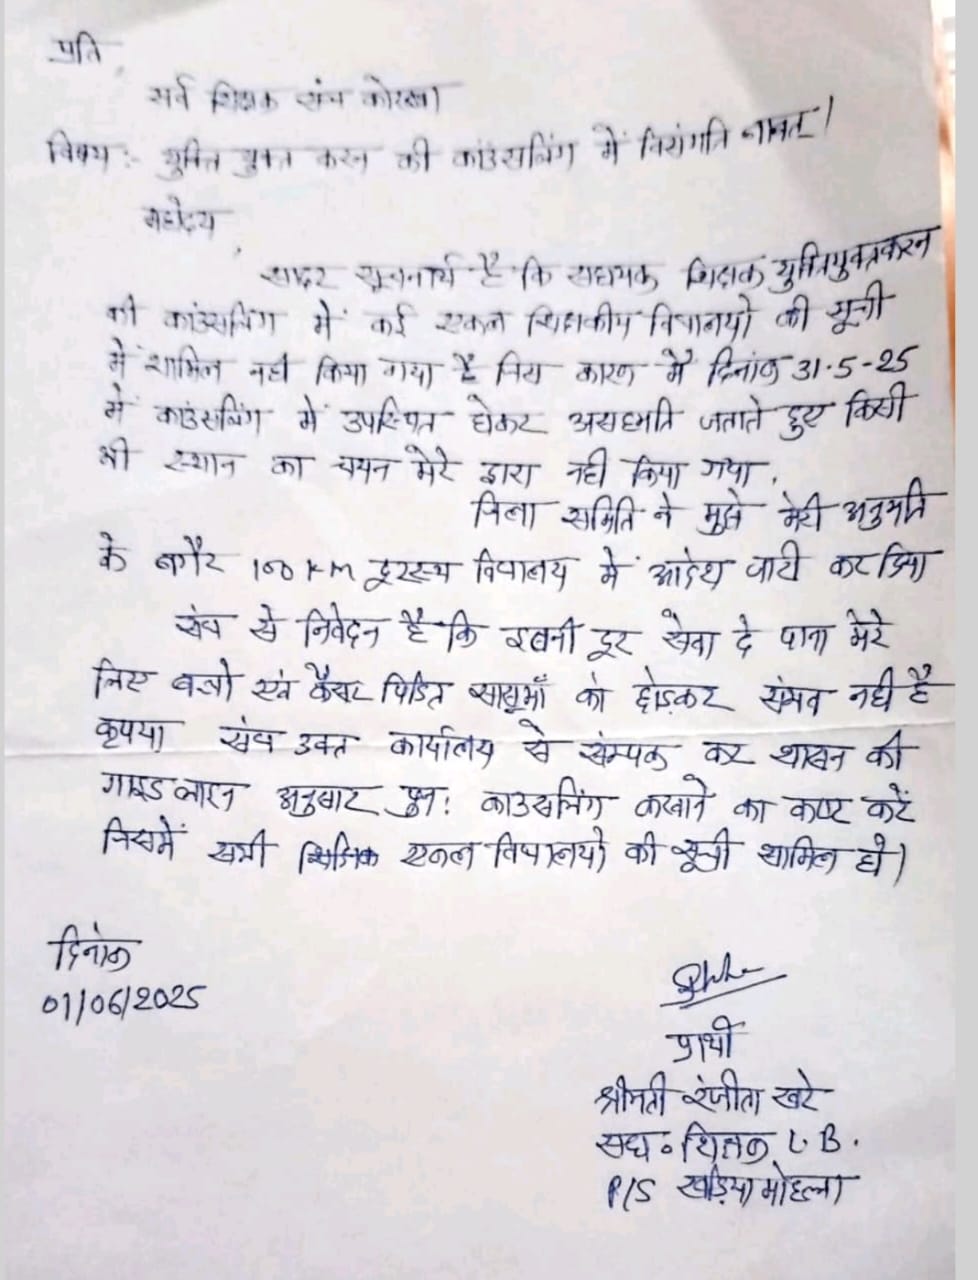 प्रति,
सर्व शिक्षक संघ कोरबा
विषय :- युक्ति युक्त करन की काउंसलिंग में विसंगति बाबत।
महोदय,
सादर सूचनार्थ है कि सहायक शिक्षक युक्तियुक्तकरन
की काउंसलिंग में कई एकल शिक्षकीय विद्यालयो की सूची
में शामिल नही किया गया है जिस कारण मैं दिनांक 31-5-25
में काउंसलिंग में उपस्थित होकर असहमति जताते हुए किसी
भी स्थान का चयन मेरे द्वारा नही किया गया,
जिला समिति ने मुझे मेरी अनुमति
के बगैर 100 KM दूरस्थ विद्यालय में आदेश जारी कर दिया
संघ से निवेदन है कि इतनी दूर सेवा दे पाना मेरे
लिए बच्चो एवं कैंसर पिडित सासूमाँ को छोड़कर संभव नही है
कृपया संघ उक्त कार्यालय से संम्पक कर शासन की
गाइड लाइन अनुसार पुन: काउसलिंग करवाने का कष्ट करें
जिसमें सभी शिक्षक एकल विद्यालयो की सूची शामिल हो।
दिनांक
01/06/2025
प्रार्थी
श्रीमती रंजीता खरे
सहा॰ शिक्षक L B.
P/S खड़िया मोहल्ला